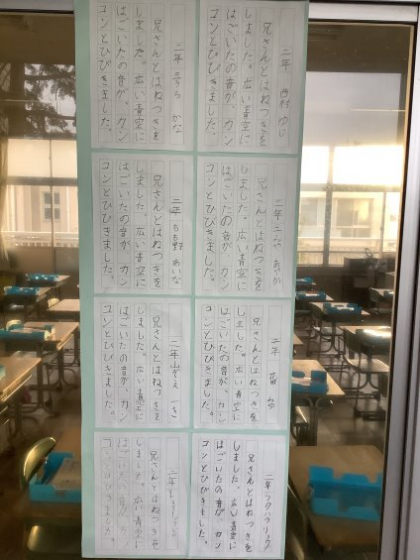 二年 西村 ゆじ
兄さんとはねつきを
しました。広い青空に
はごいたの音が、カン
コンとひびきました。
二年 そら かな
兄さんとはねつきを
しました。広い青空に
はごいたの音が、カン
コンとひびきました。
二年
兄さんとはねつきを
しました。広い青空に
はごいたの音が、カン
コンとひびきました。
二年 あいな
兄さんとはねつきを
しました。広い青空に
はごいたの音が、カン
コンとひびきました。
二年
兄さんとはねつきを
しました。広い青空に
はごいたの音が、カン
コンとひびきました。
二年
兄さんとはねつきを
しました。広い青空に
はごいたの音が、カン
コンとひびきました。
二年
兄さんとはねつきを
しました。広い青空に
はごいたの音が、カン
コンとひびきました。
二年
兄さんとはねつきを
しました。広い青空に
はごいたの音が、カン
コンとひびきました。